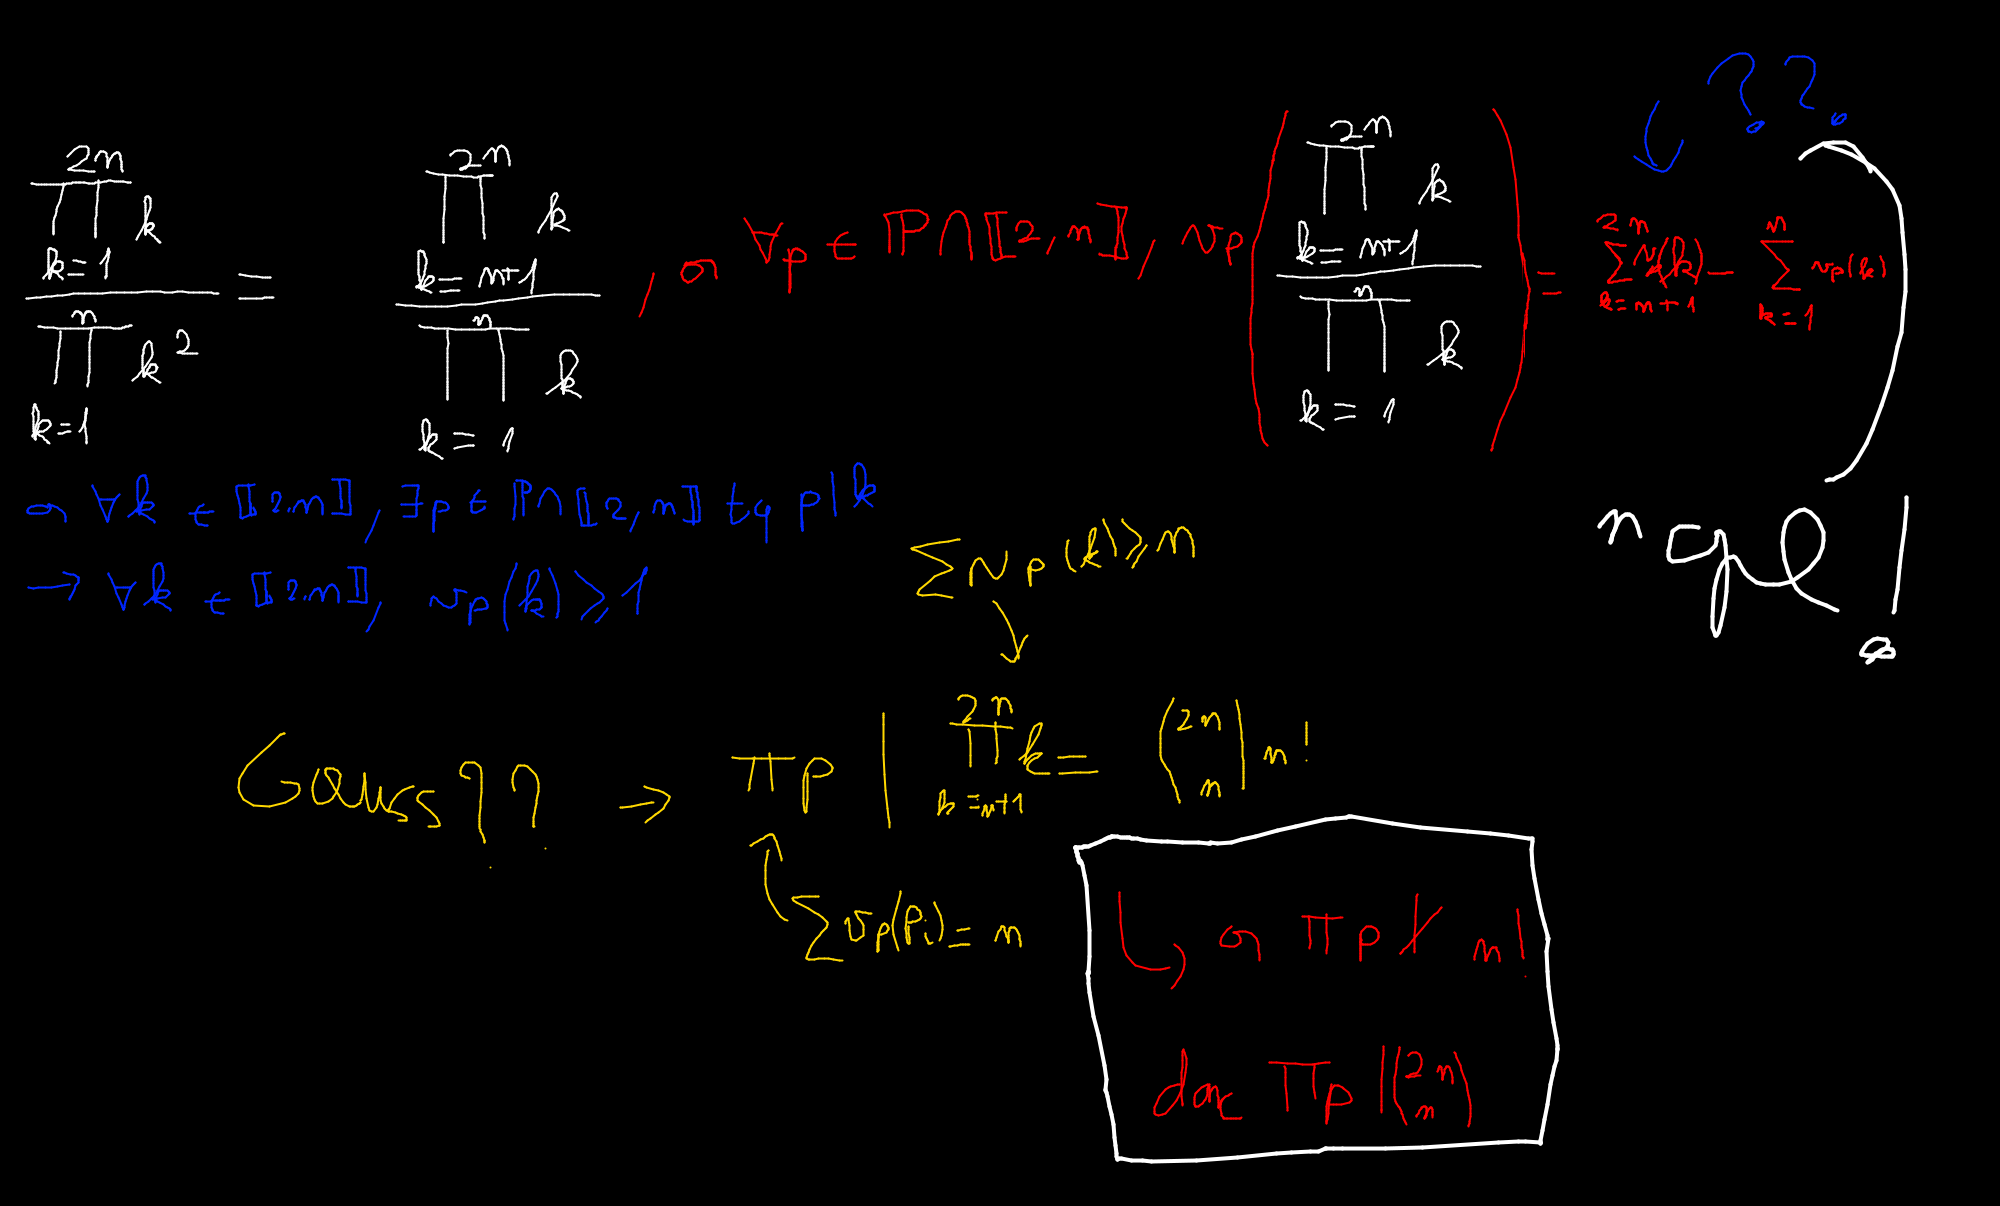 ??
∏_{k=1}^{2n} k / ∏_{k=1}^{n} k² = ∏_{k=n+1}^{2n} k / ∏_{k=1}^{n} k , or ∀p ∈ ℙ∩⟦2,n⟧, vp( ∏_{k=n+1}^{2n} k / ∏_{k=1}^{n} k ) = ∑_{k=n+1}^{2n} vp(k) − ∑_{k=1}^{n} vp(k) )
or ∀k ∈ ⟦2.n⟧, ∃p ∈ ℙ∩⟦2,n⟧ tq p|k
→ ∀k ∈ ⟦2.n⟧, vp(k) ≥ 1
∑vp(k) ≥ n
↓
Gauss?? → πp | ∏_{k=n+1}^{2n} k = (2n n) n!
∑vp(Pi) = n
↳ or πp ∤ n!
donc πp | (2n n)